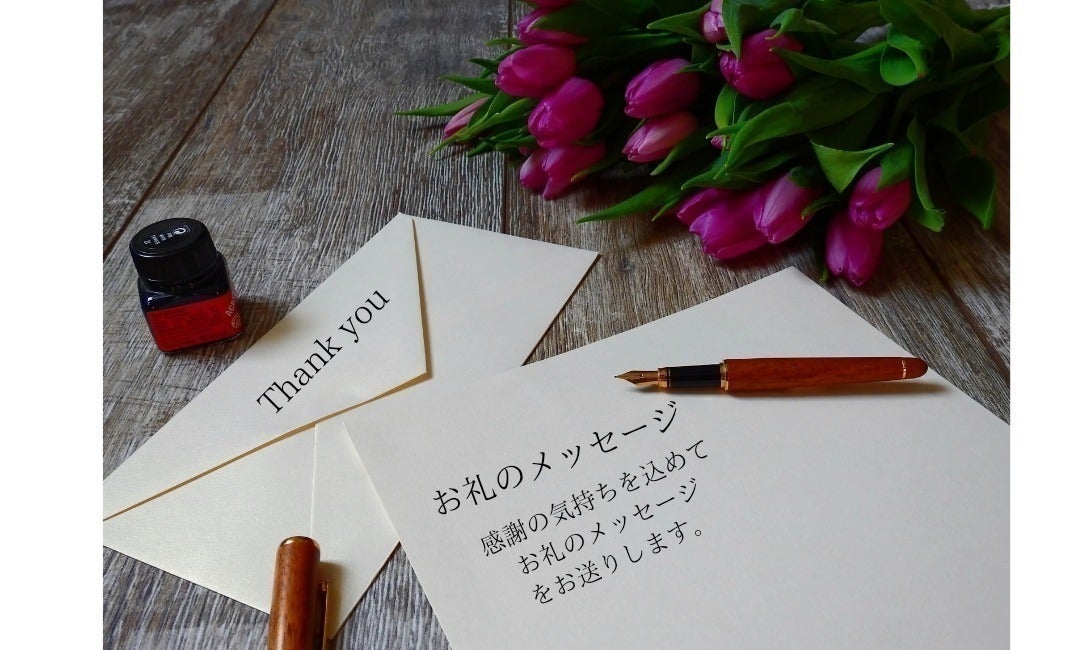 Thank you
お礼のメッセージ
感謝の気持ちを込めて
お礼のメッセージ
をお送りします。